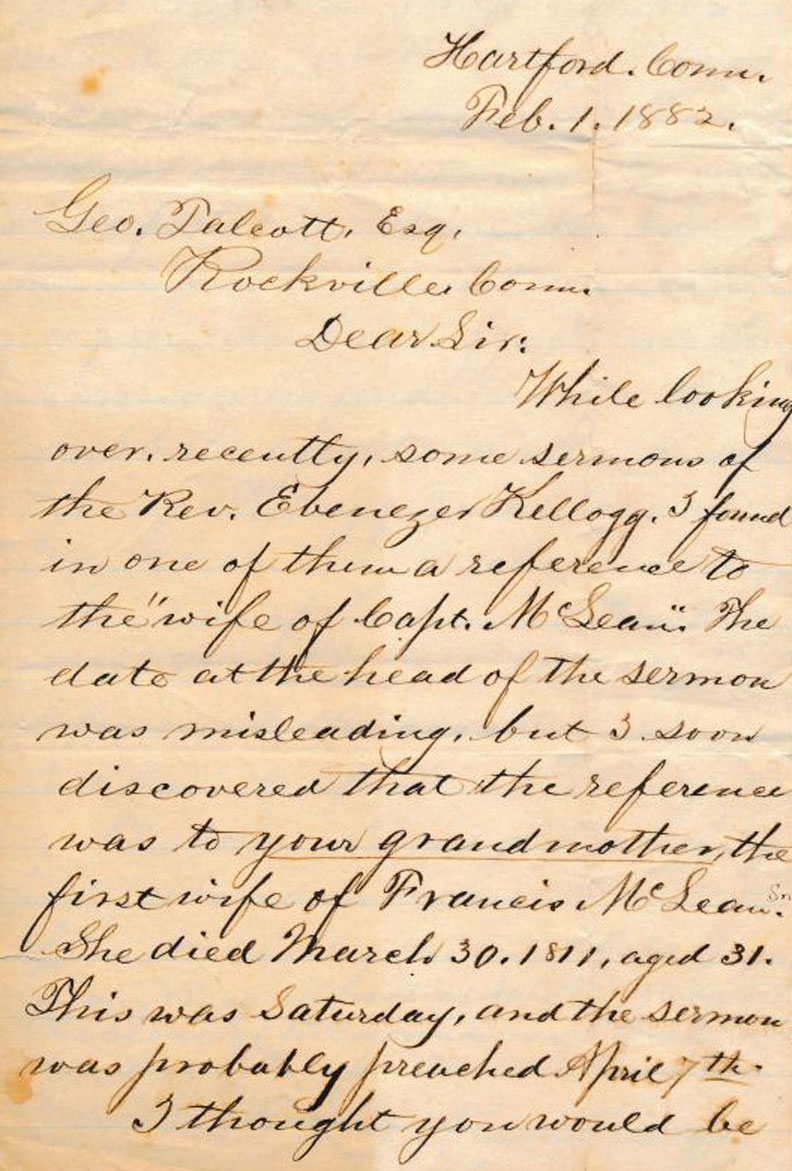 Hartford. Conn.
Feb. 1. 1882.
Geo. Talcott, Esq,
Rockville. Conn.
Dear Sir:
While looking
over, recently, some sermons of
the Rev. Ebenezer Kellogg. I found
in one of them a reference to
the "wife of Capt. McLean". The
date at the head of the sermon
was misleading, but I soon
discovered that the reference
was to your grandmother, the
first wife of Francis McLean. Sr.
She died March 30. 1811, aged 31.
This was Saturday, and the sermon
was probably preached April 7th.
I thought you would be